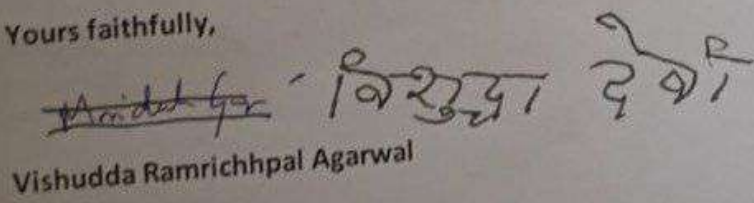 Yours faithfully,
विशुद्धा देवी
Vishudda Ramrichhpal Agarwal